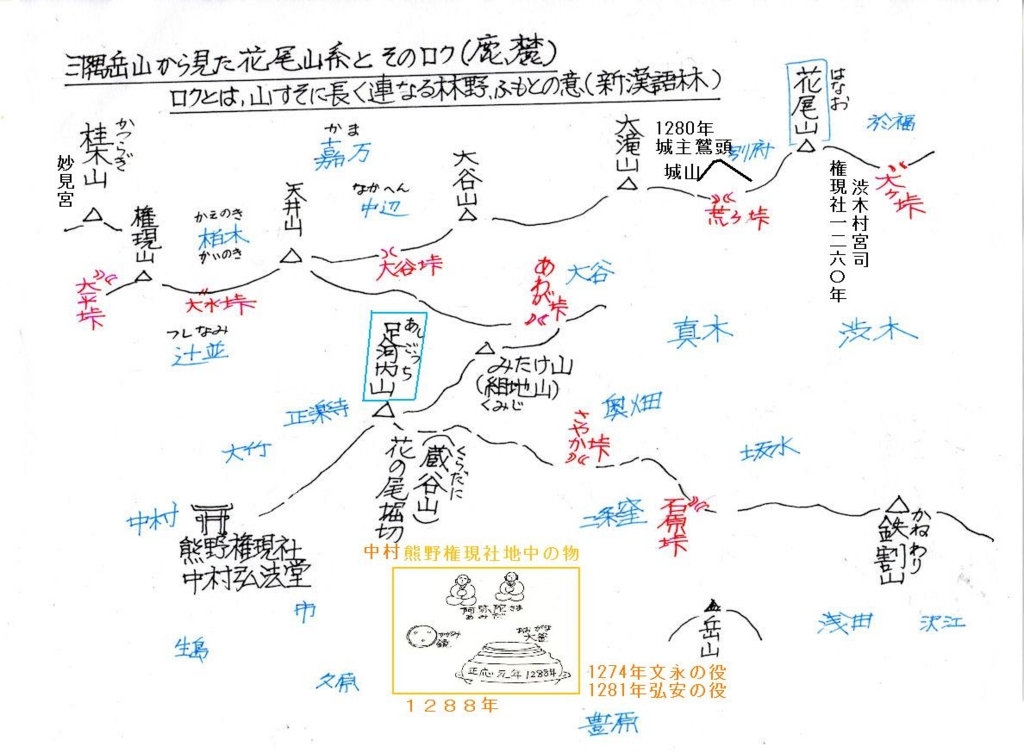 三隅岳山から見た花尾山系とそのロク(鹿、麓)
ロクとは,山すそに長く連なる林野,ふもとの意(新漢語林)
はなお
花尾山
於福
1280年
城主鷲頭
城山
別府
大滝山
かま
嘉万
大谷山
かつらぎ
桂木山
妙見宮
権現山
かえのき
柏木
かいのき
天井山
なかへん
中辺
大谷峠
荒ヶ峠
大ヶ峠
渋木村宮司
権現社一二六〇年
大平峠
大水峠
つしなみ
辻並
あわが峠
大谷
真木
渋木
あしごうち
足河内山
みたけ山
(組地山)
くみじ
正楽寺
大竹
奥畑
さやか峠
坂水
くらだに
(蔵谷山)
花の尾堀切
中村
熊野権現社
中村弘法堂
二条窪
石原峠
かねわり
鉄割山
中村熊野権現社地中の物
阿弥陀さま
あみだ
かがみ
鏡
おおがま
大釜
正応元年1288年
1288年
1274年文永の役
1281年弘安の役
岳山
浅田
沢江
市
生島
久原
豊原